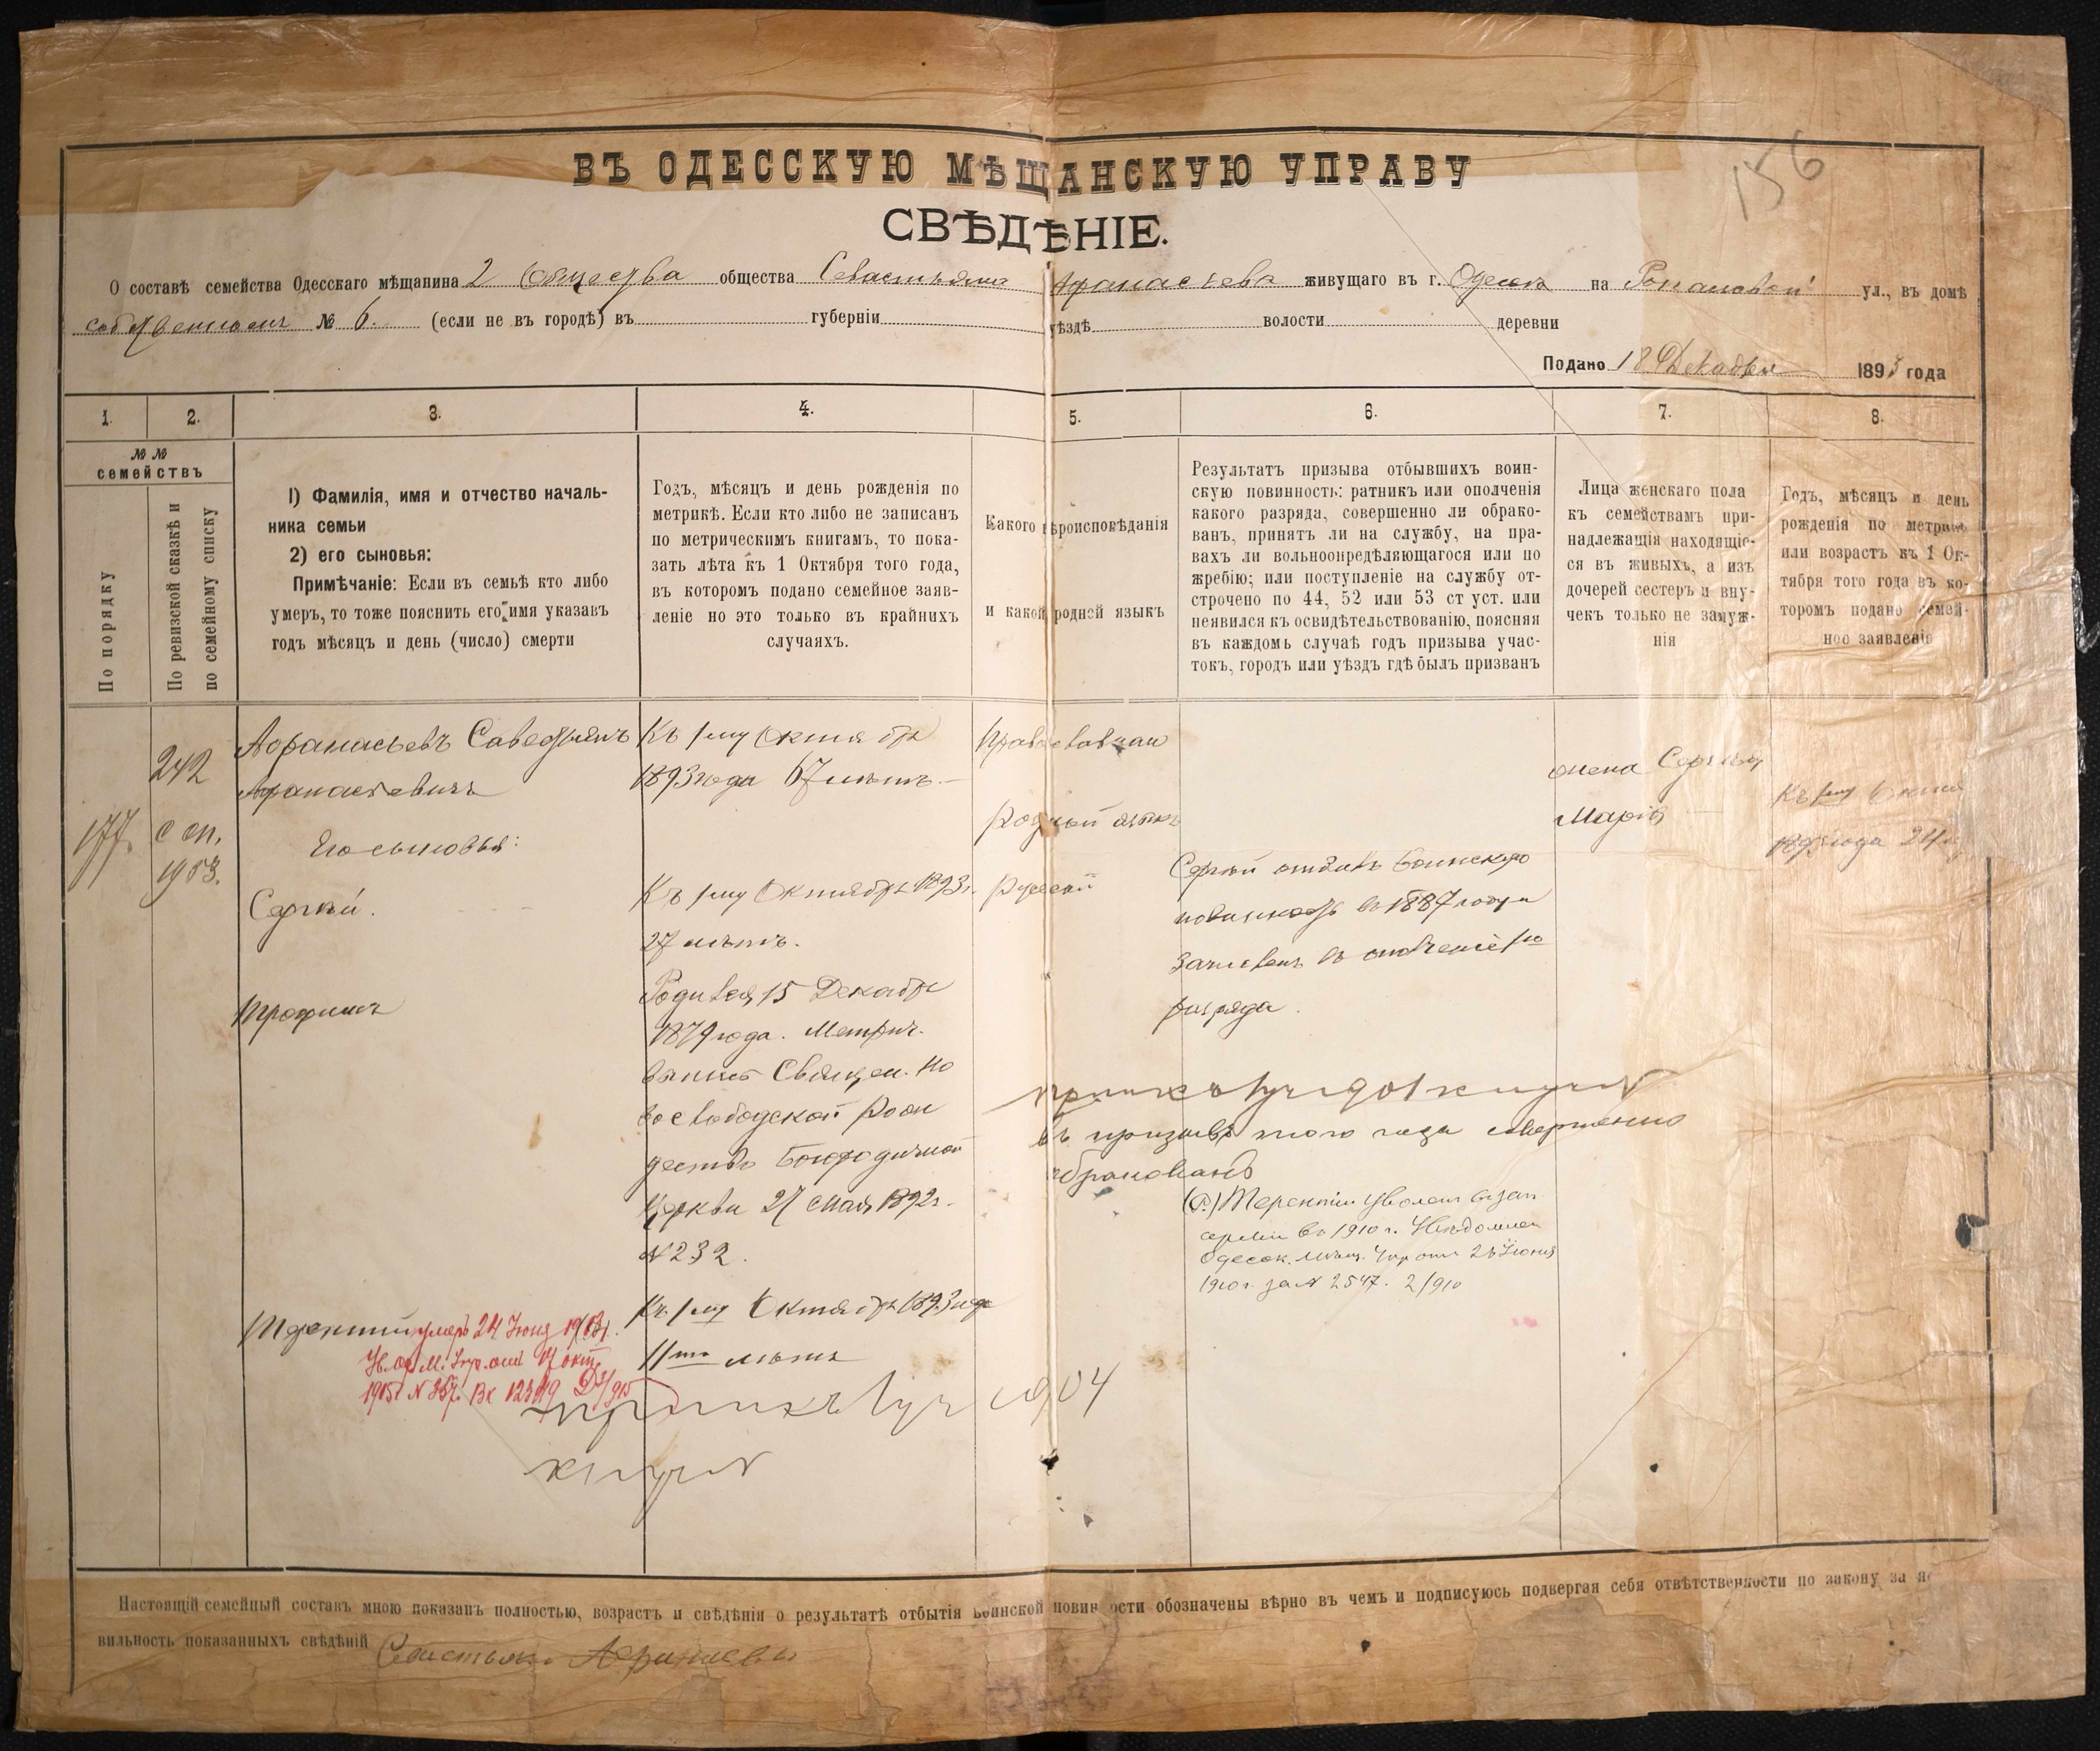 156
ВЪ ОДЕССКУЮ МѢЩАНСКУЮ УПРАВУ
СВѢДѢНІЕ.
О составѣ семейства Одесскаго мѣщанина 2 Общества общества Севастьяна Афанасьева живущаго въ г. Одесса на Романовой ул., въ домѣ
собственномъ № 6. (если не въ городѣ) въ губерніи уѣздѣ волости деревни
Подано 18 Декабря 1893 года
1. 2. 3. 4. 5. 6. 7. 8.
№ №
семействъ
По порядку
По ревизской сказкѣ и
по семейному списку
1) Фамилія, имя и отчество началь-
ника семьи
2) его сыновья:
Примѣчаніе: Если въ семьѣ кто либо
умеръ, то тоже пояснить его имя указавъ
годъ мѣсяцъ и день (число) смерти
Годъ, мѣсяцъ и день рожденія по
метрикѣ. Если кто либо не записанъ
по метрическимъ книгамъ, то пока-
зать лѣта къ 1 Октября того года,
въ которомъ подано семейное заяв-
леніе но это только въ крайнихъ
случаяхъ.
Какого вѣроисповѣданія
и какой родной языкъ
Результатъ призыва отбывшихъ воин-
скую повинность: ратникъ или ополченія
какого разряда, совершенно ли обрако-
ванъ, принятъ ли на службу, на пра-
вахъ ли вольноопредѣляющагося или по
жребію; или поступленіе на службу от-
строчено по 44, 52 или 53 ст уст. или
неявился къ освидѣтельствованію, поясняя
въ каждомъ случаѣ годъ призыва учас-
токъ, городъ или уѣздъ гдѣ былъ призванъ
Лица женскаго пола
къ семействамъ при-
надлежащія находящіе-
ся въ живыхъ, а изъ
дочерей сестеръ и вну-
чекъ только не замуж-
нія
Годъ, мѣсяцъ и день
рожденія по метрикѣ
или возрастъ къ 1 Ок-
тября того года въ ко-
торомъ подано семей-
ное заявленіе
177
242
с сп.
1953.
Афанасьевъ Савестьянъ
Афанасьевичъ
Его сыновья:
Сергѣй.
Трофимъ
Терентій умеръ 24 Іюня
Къ 1му Октября
1893 года 67 лѣтъ.
Къ 1му Октября 1893 г.
27 лѣтъ.
Родился 15 Декабря
1879 года. Метрич.
выпись Священ. Но
вослободской Рож
дество Богородичной
Церкви 27 мая 1892 г.
№ 232.
Къ 1му Октября 1893 года
11ть лѣтъ
1904
Православная
Родной языкъ
Русскій
Сергѣй отбылъ воинскую
повинность въ 1887 году и
зачисленъ въ ополченіе 1го
разряда.
въ призывъ этого года совершенно
обракованъ
Терентій уволенъ въ зап.
арміи въ 1910 г. Увѣдомлен
Одесск. мѣщ. Упр отъ 28 Іюня
1910 г. за № 2547. 2/910
жена Сергѣя
Марія
Къ 1му Октя
1893 года 24 л.
Настоящій семейный составъ мною показанъ полностью, возрастъ и свѣдѣнія о результатѣ отбытія воинской повинности обозначены вѣрно въ чемъ и подписуюсь подвергая себя отвѣтственности по закону за
вильность показанныхъ свѣдѣній